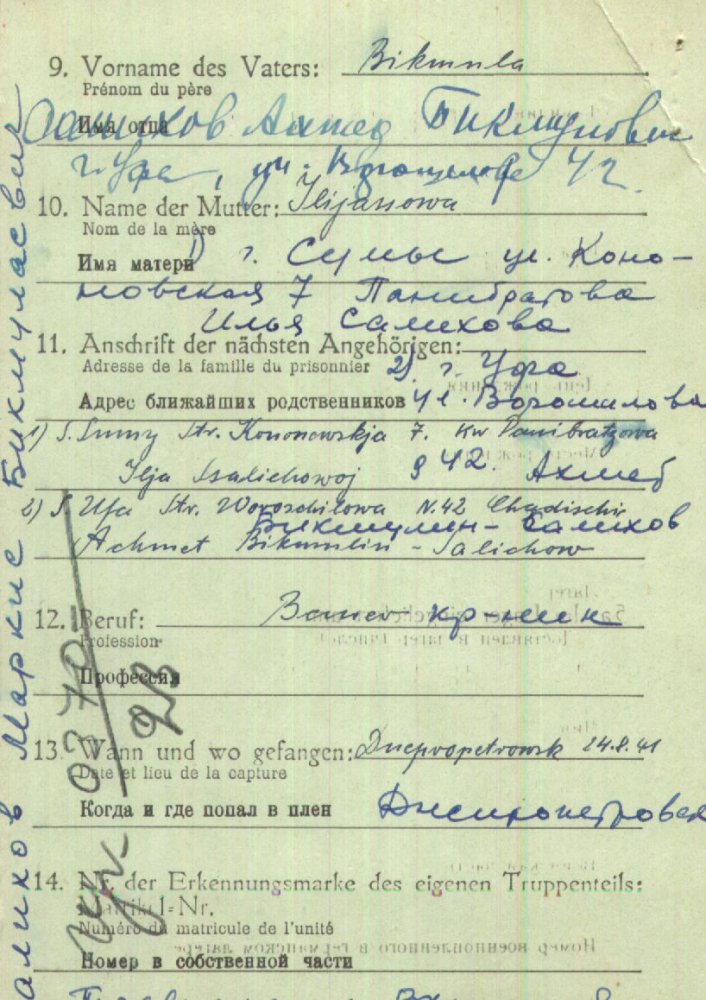 9. Vorname des Vaters: Bikmula
Prénom du père
Имя отца
Салихов Ахмед Бикмулович
г. Уфа, ул. Ворошилова 42
10. Name der Mutter: Ilijassowa
Nom de la mère
Имя матери 1) г. Сумы ул. Коно-
новская 7 Панибратова
Илья Салихова
11. Anschrift der nächsten Angehörigen:
Adresse de la famille du prisonnier 2) г. Уфа
Адрес ближайших родственников ул. Ворошилова
1) S. Sumy Str. Kononowskja 7. kw Panibratzowa
Ilja Ssalichowoj 9 42. Ахмед
2) S. Ufa Str. Woroschilowa N. 42 Chadischir
Бикмулин-Салихов
Achmet Bikmulin-Salichow
12. Beruf: Bauer кр-ник
Profession
Профессия
13. Wann und wo gefangen: Dnepropetrowsk 24.8.41
Date et lieu de la capture
Когда и где попал в плен Днепропетровск
14. Nr. der Erkennungsmarke des eigenen Truppenteils:
Matrikel-Nr.
Numéro du matricule de l'unité
Номер в собственной части
аликов Маркис Бикмуласвич
0370